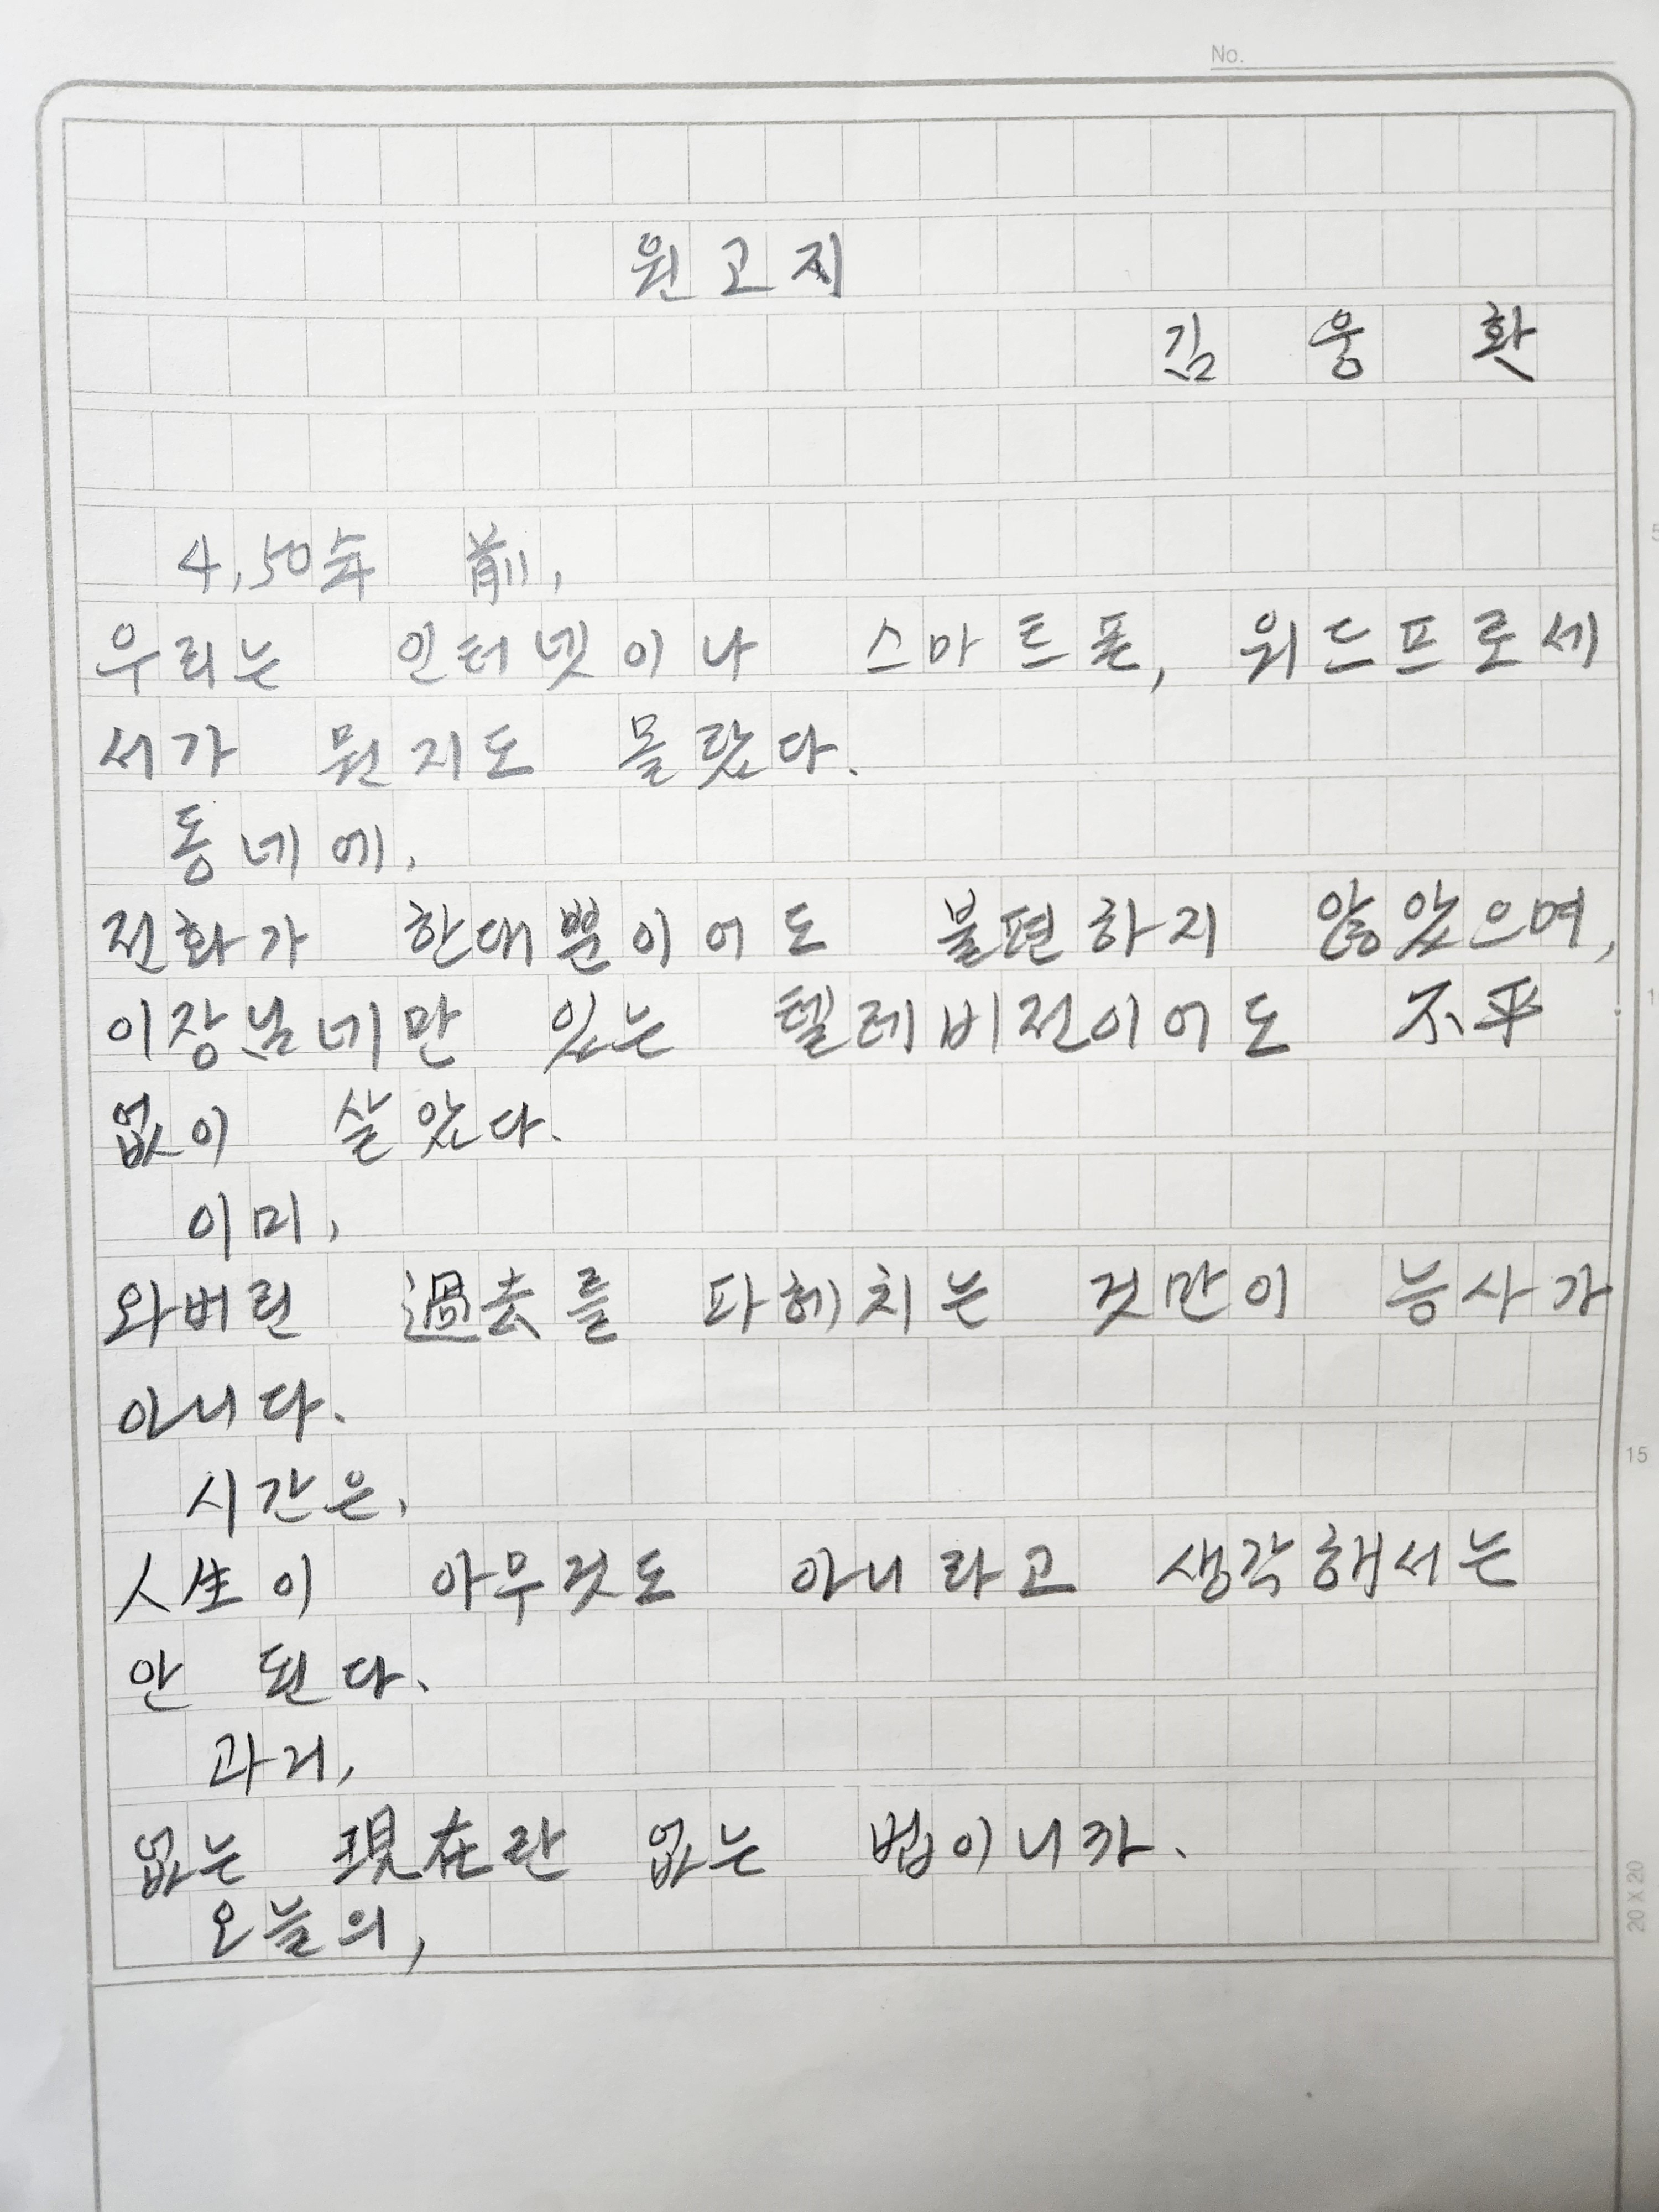 No.
원고지
김 웅 환
4,50年 前,
우리는 인터넷이나 스마트폰, 워드프로세
서가 뭔지도 몰랐다.
동네에,
전화가 한대뿐이어도 불편하지 않았으며,
이장님네만 있는 텔레비전이어도 不平
없이 살았다.
이미,
와버린 過去를 파헤치는 것만이 능사가
아니다.
15
시간은,
人生이 아무것도 아니라고 생각해서는
안 된다.
과거,
없는 現在란 없는 법이니까.
오늘의,
20 X 20